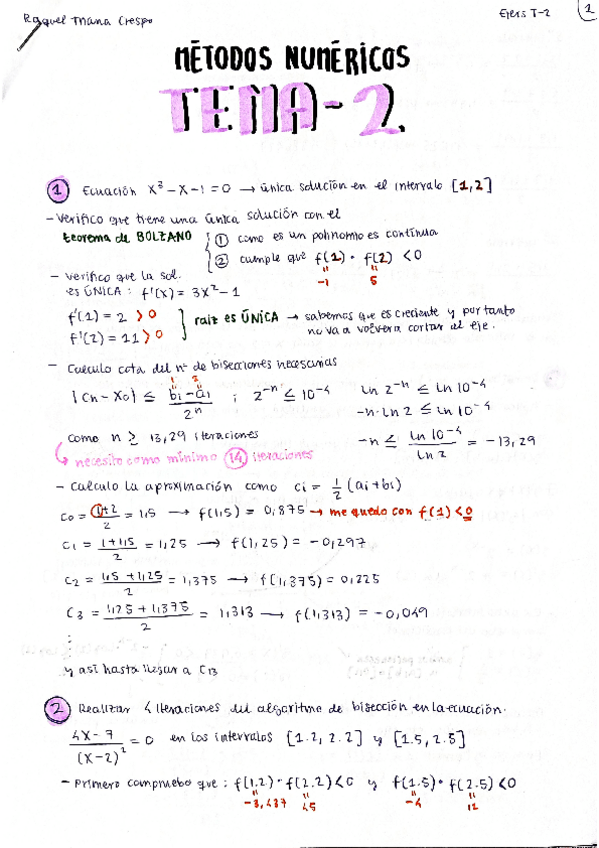 Raquel Triana Crespo
Ejers T-2
1
MÉTODOS NUMÉRICOS
TEMA-2.
1 Ecuación x³-x-1=0 → única solución en el intervalo [1,2]
- Verifico que tiene una única solución con el
teorema de BOLZANO
① como es un polinomio es continua
② cumple que f(1) · f(2) < 0
-1 5
- Verifico que la sol.
es ÚNICA: f'(x) = 3x²-1
f'(1) = 2 > 0
f'(2) = 11 > 0
raiz es ÚNICA → sabemos que es creciente y por tanto
no va a volver a cortar el eje.
- Calculo cota del nº de bisecciones necesarias
1 2
|Cn - X0| ≤ (bi-ai)/2ⁿ ; 2⁻ⁿ ≤ 10⁻⁴ ln 2⁻ⁿ ≤ ln 10⁻⁴
-n·ln 2 ≤ ln 10⁻⁴
como n ≥ 13,29 iteraciones -n ≤ ln 10⁻⁴/ln 2 = -13,29
necesito como mínimo 14 iteraciones
- Calculo la aproximación como ci = 1/2 (ai+bi)
c0 = (1+2)/2 = 1,5 → f(1,5) = 0,875 → me quedo con f(1)<0
c1 = (1+1,5)/2 = 1,25 → f(1,25) = -0,297
c2 = (1,5+1,25)/2 = 1,375 → f(1,375) = 0,225
c3 = (1,25+1,375)/2 = 1,313 → f(1,313) = -0,049
⋮
y así hasta llegar a C13
2 Realizar 4 iteraciones del algoritmo de bisección en la ecuación.
(4x-7)/(x-2)² = 0 en los intervalos [1.2, 2.2] y [1.5, 2.5]
- Primero compruebo que: f(1.2)·f(2.2)<0 y f(1.5)·f(2.5)<0
-3,437 45 -4 12